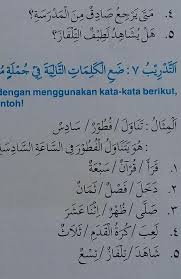 ٤. مَتَى يَرْجِعُ صَادِقٌ مِنَ الْمَدْرَسَةِ؟
٥. هَلْ يُشَاهِدُ لَطِيْفٌ التِّلْفَازَ؟
اَلتَّدْرِيْبُ ٧ : ضَعِ الْكَلِمَاتِ التَّالِيَةَ فِيْ جُمْلَةٍ
dengan menggunakan kata-kata berikut,
ntoh!
اَلْمِثَالُ : تَنَاوَلَ / فُطُوْرٌ / سَادِسٌ
: هُوَ يَتَنَاوَلُ الْفُطُوْرَ فِي السَّاعَةِ السَّادِسَةِ
١. قَرَأَ / قُرْآنٌ / سَبْعَةٌ
٢. دَخَلَ / فَصْلٌ / ثَمَانٌ
٣. صَلَّى / ظُهْرٌ / اِثْنَا عَشَرَ
٤. لَعِبَ / كُرَةُ الْقَدَمِ / ثَلَاثٌ
٥. شَاهَدَ / تِلْفَازٌ / تِسْعٌ